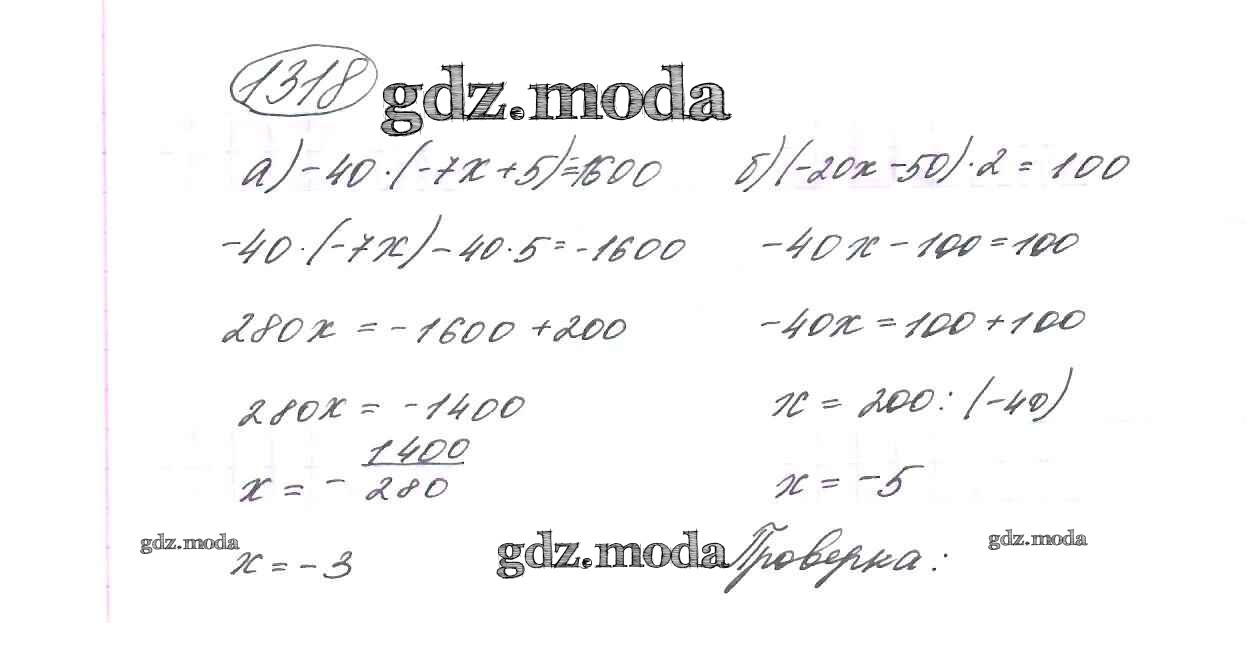 1318 gdz.moda
а) -40·(-7x+5)=1600
-40·(-7x)-40·5=-1600
280x = -1600+200
280x = -1400
x = - 1400/280
x = -3
б) (-20x-50)·2 = 100
-40x-100=100
-40x=100+100
x = 200:(-40)
x = -5
Проверка:
gdz.moda
gdz.moda
gdz.moda